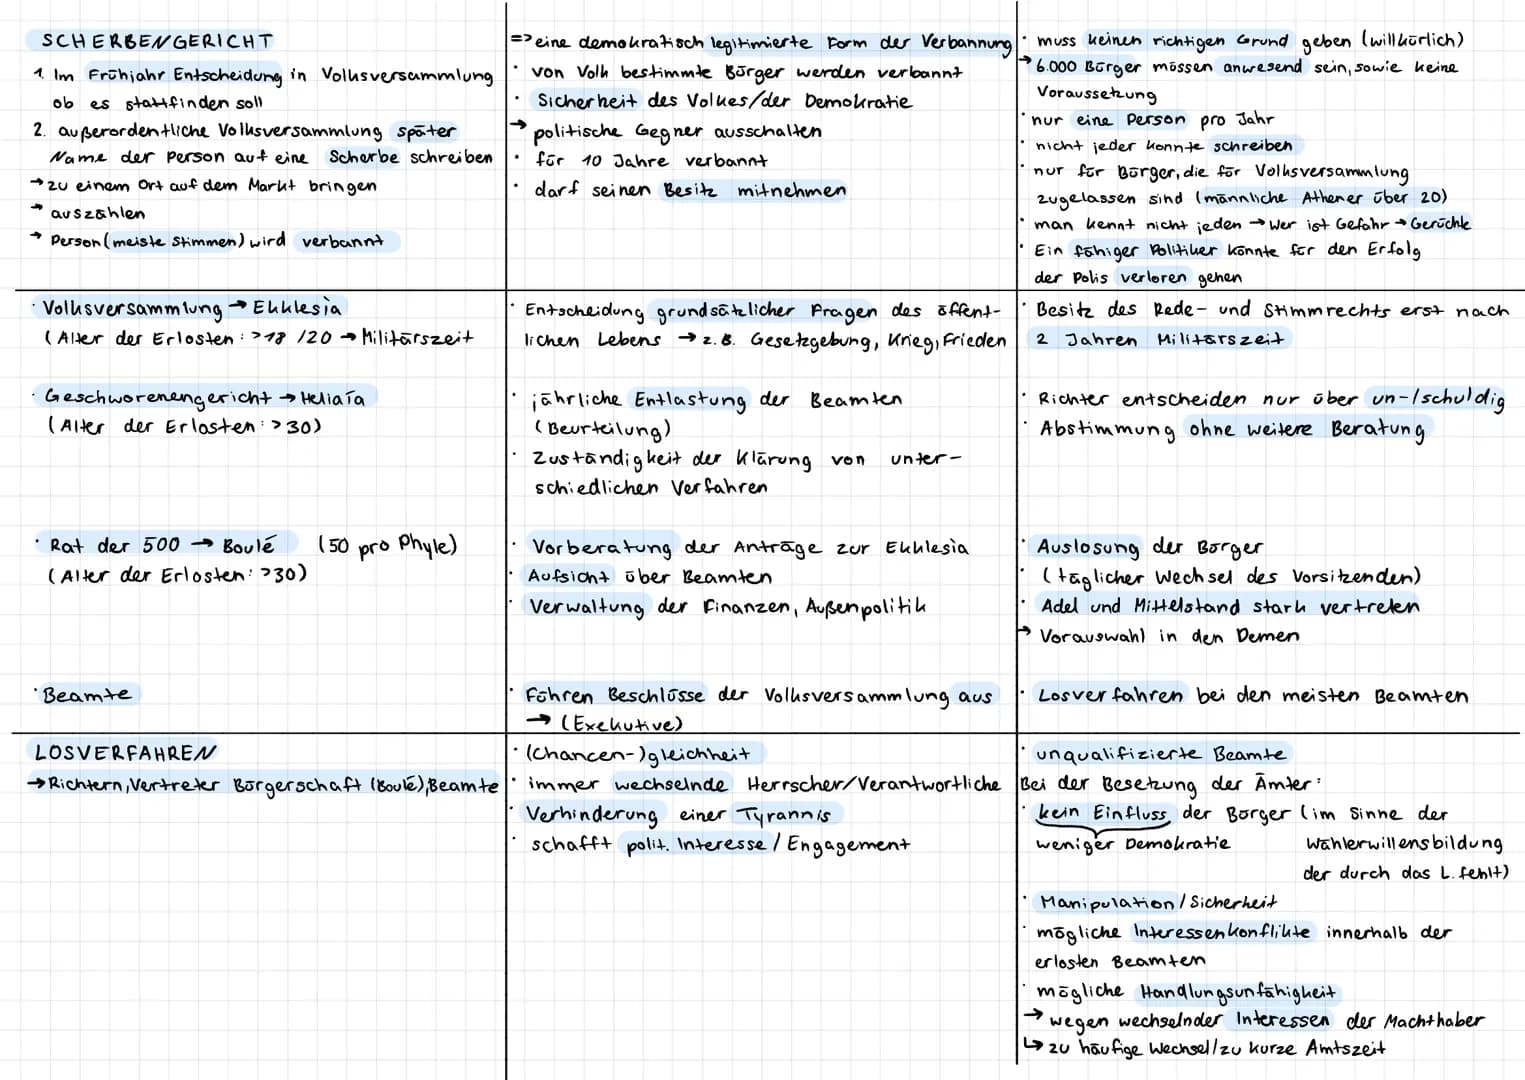 SCHERBENGERICHT
1. Im Frühjahr Entscheidung in Volksversammlung
ob es stattfinden soll
2. außerordentliche Volksversammlung später
Name der Person auf eine Scherbe schreiben
→ zu einem Ort auf dem Markt bringen
→ auszählen
→ Person (meiste Stimmen) wird verbannt
=> eine demokratisch legitimierte Form der Verbannung
· von Volk bestimmte Bürger werden verbannt
· Sicherheit des Volkes/der Demokratie
→ politische Gegner ausschalten
· für 10 Jahre verbannt
· darf seinen Besitz mitnehmen
· muss keinen richtigen Grund geben (willkürlich)
→ 6.000 Bürger müssen anwesend sein, sowie keine
Voraussetzung
· nur eine Person pro Jahr
· nicht jeder konnte schreiben
· nur für Bürger, die für Volksversammlung
zugelassen sind (männliche Athener über 20)
· man kennt nicht jeden → Wer ist Gefahr → Gerüchte
· Ein fähiger Politiker könnte für den Erfolg
der Polis verloren gehen
· Volksversammlung → Ekklesia
(Alter der Erlosten: >18 /20 → Militärszeit
· Entscheidung grundsätzlicher Fragen des öffent-
lichen Lebens → z.B. Gesetzgebung, Krieg, Frieden
· Besitz des Rede- und Stimmrechts erst nach
2 Jahren Militärszeit
· Geschworenengericht → Heliaía
(Alter der Erlosten: >30)
· jährliche Entlastung der Beamten
(Beurteilung)
· Zuständigkeit der Klärung von unter-
schiedlichen Verfahren
· Richter entscheiden nur über un-/schuldig
· Abstimmung ohne weitere Beratung
· Rat der 500 → Boulé (50 pro Phyle)
(Alter der Erlosten: >30)
· Vorberatung der Anträge zur Ekklesia
· Aufsicht über Beamten
· Verwaltung der Finanzen, Außenpolitik
· Auslosung der Bürger
· (täglicher Wechsel des Vorsitzenden)
· Adel und Mittelstand stark vertreten
→ Vorauswahl in den Demen
· Beamte
· Führen Beschlüsse der Volksversammlung aus
→ (Exekutive)
· Losverfahren bei den meisten Beamten
LOSVERFAHREN
→ Richtern, Vertreter Bürgerschaft (Boulé), Beamte
· (Chancen-)gleichheit
· immer wechselnde Herrscher/Verantwortliche
· Verhinderung einer Tyrannis
· schafft polit. Interesse / Engagement
· unqualifizierte Beamte
Bei der Besetzung der Ämter:
· kein Einfluss der Bürger (im Sinne der
weniger Demokratie Wählerwillensbildung
der durch das L. fehlt)
· Manipulation / Sicherheit
· mögliche Interessenkonflikte innerhalb der
erlosten Beamten
· mögliche Handlungsunfähigkeit
→ wegen wechselnder Interessen der Machthaber
↳ zu häufige Wechsel/zu kurze Amtszeit